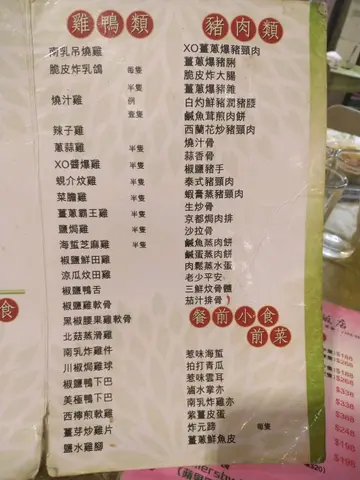 雞鴨類
南乳吊燒雞
脆皮炸乳鴿 每隻
半隻
燒汁雞 例
壹隻
辣子雞
蔥蒜雞 半隻
XO醬爆雞 半隻
蜆介炆雞 半隻
菜膽雞 半隻
薑蔥霸王雞 半隻
鹽焗雞 半隻
海蜇芝麻雞 半隻
椒鹽鮮田雞
涼瓜炆田雞
椒鹽鴨舌
椒鹽雞軟骨
黑椒腰果雞軟骨
北菇蒸滑雞
南乳炸雞件
川椒焗雞球
椒鹽鴨下巴
美極鴨下巴
西檸煎軟雞
薑芽炒雞片
鹽水雞腳
豬肉類
XO薑蔥爆豬頸肉
薑蔥爆豬脷
脆皮炸大腸
薑蔥爆豬雜
白灼鮮豬潤豬腰
鹹魚茸煎肉餅
西蘭花炒豬頸肉
燒汁骨
蒜香骨
椒鹽豬手
泰式豬頸肉
蝦膏蒸豬頸肉
生炒骨
京都焗肉排
沙拉骨
鹹魚蒸肉餅
鹹蛋蒸肉餅
肉鬆蒸水蛋
老少平安
三鮮炆骨髓
茄汁排骨
餐前小食
前菜
惹味海蜇
拍打青瓜
惹味雲耳
滷水掌亦
南乳炸雞亦
紫薑皮蛋
炸元蹄 每隻
薑蔥鮮魚皮
食
店
$168
$268
$338
$338
$388
$248
$198
$198